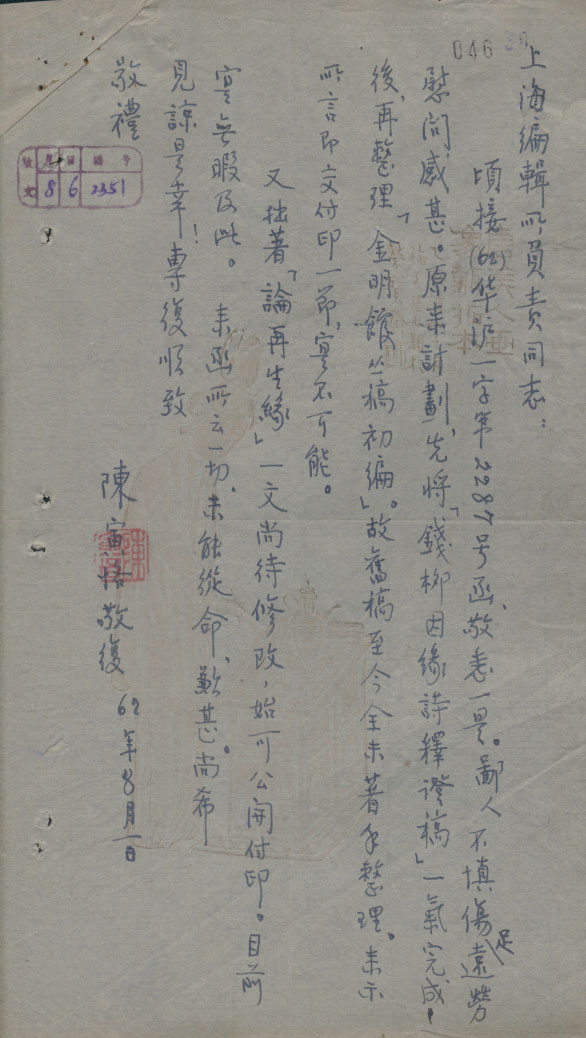 046
上海編輯所負責同志：
頃接(62)华沪一字第2287号函，敬悉一是。鄙人不慎傷足，遠勞
慰問，感甚。原来計劃，先將「錢柳因缘詩釋證稿」一氣完成，
後，再整理「金明館丛稿初编」。故舊稿至今全未著手整理。来示
所言即交付印一節，实不可能。
又拙著「論再生緣」一文尚待修改，始可公開付印。目前
实無暇及此。来函所云一切，未能從命，歉甚。尚希
見諒是幸！專復順致
敬禮
陳寅恪敬復 62年8月1日
號 编 号
文 8 6 2351